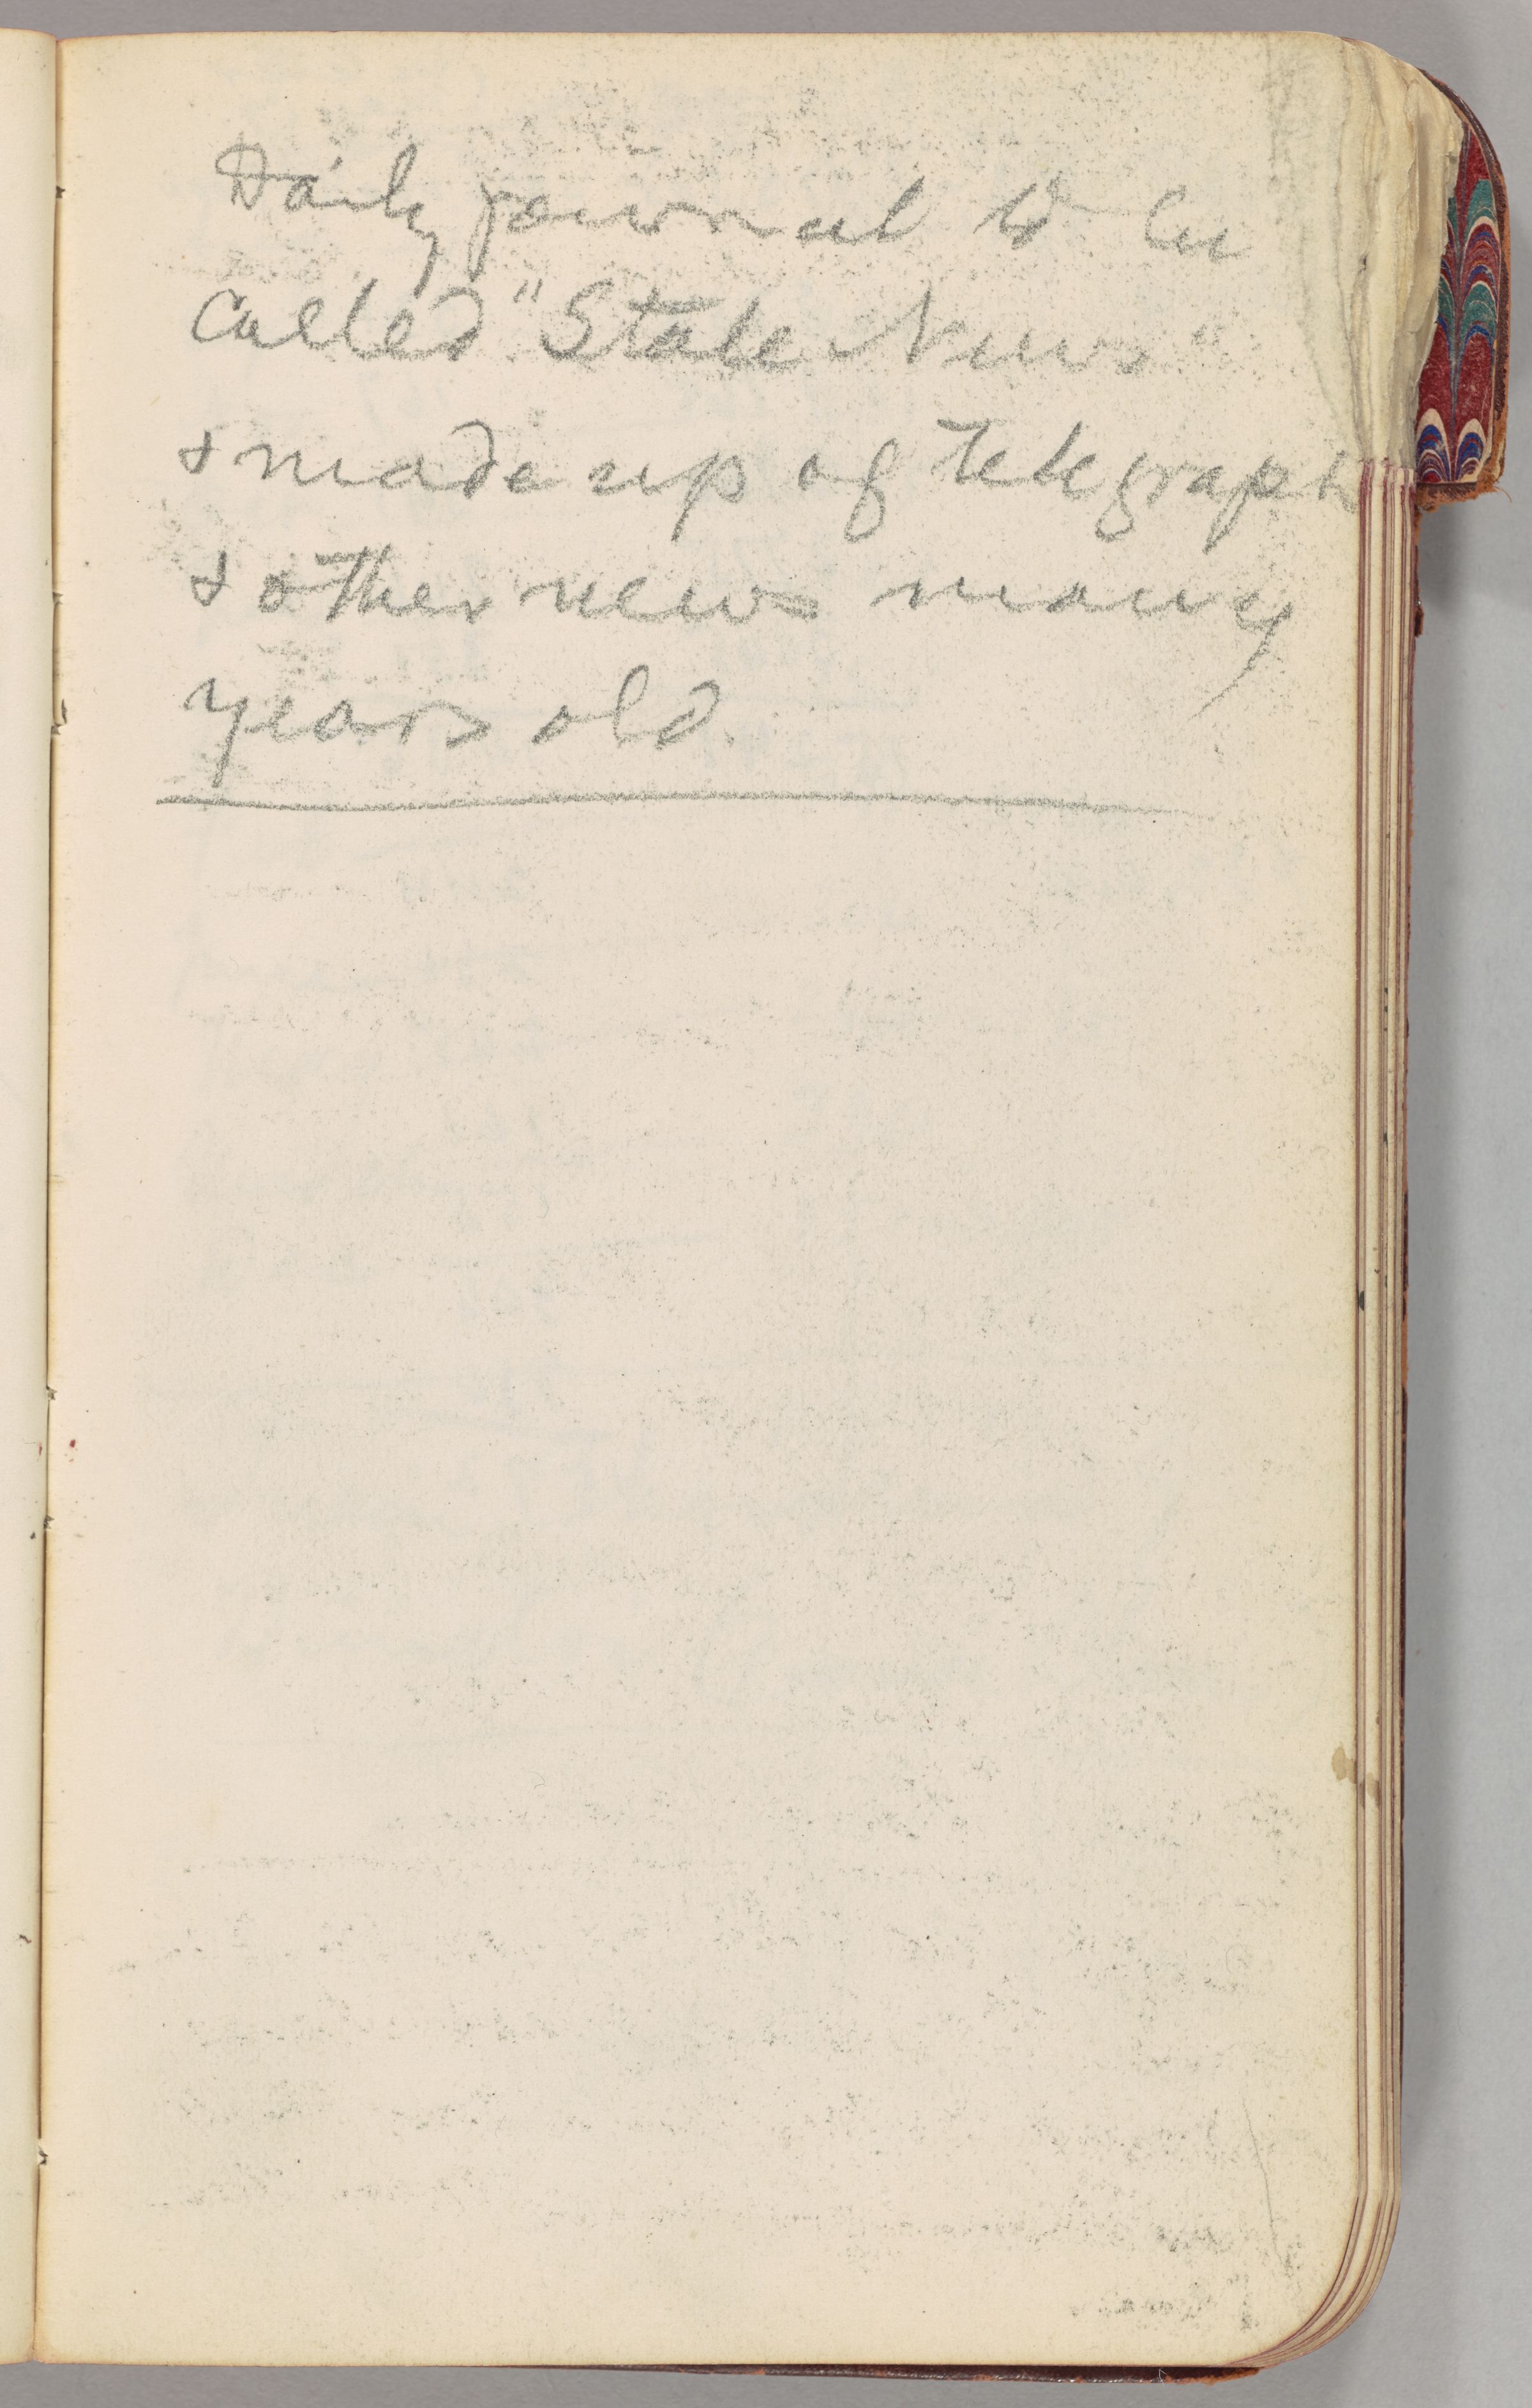 Daily journal to be
called "Stale News"
& made up of telegraph
& other news many
years old.